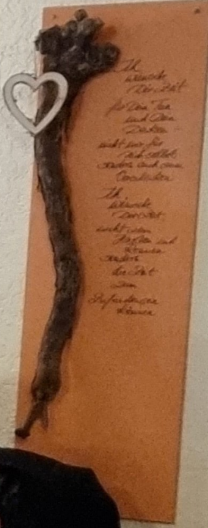 Ich
wünsche
Dir Zeit
für Dein Tun
und Dein
Denken
nicht nur für
Dich selbst
sondern auch zum
Verschenken
Ich
wünsche
Dir Zeit
nicht zum
Hasten und
Rennen
sondern
die Zeit
zum